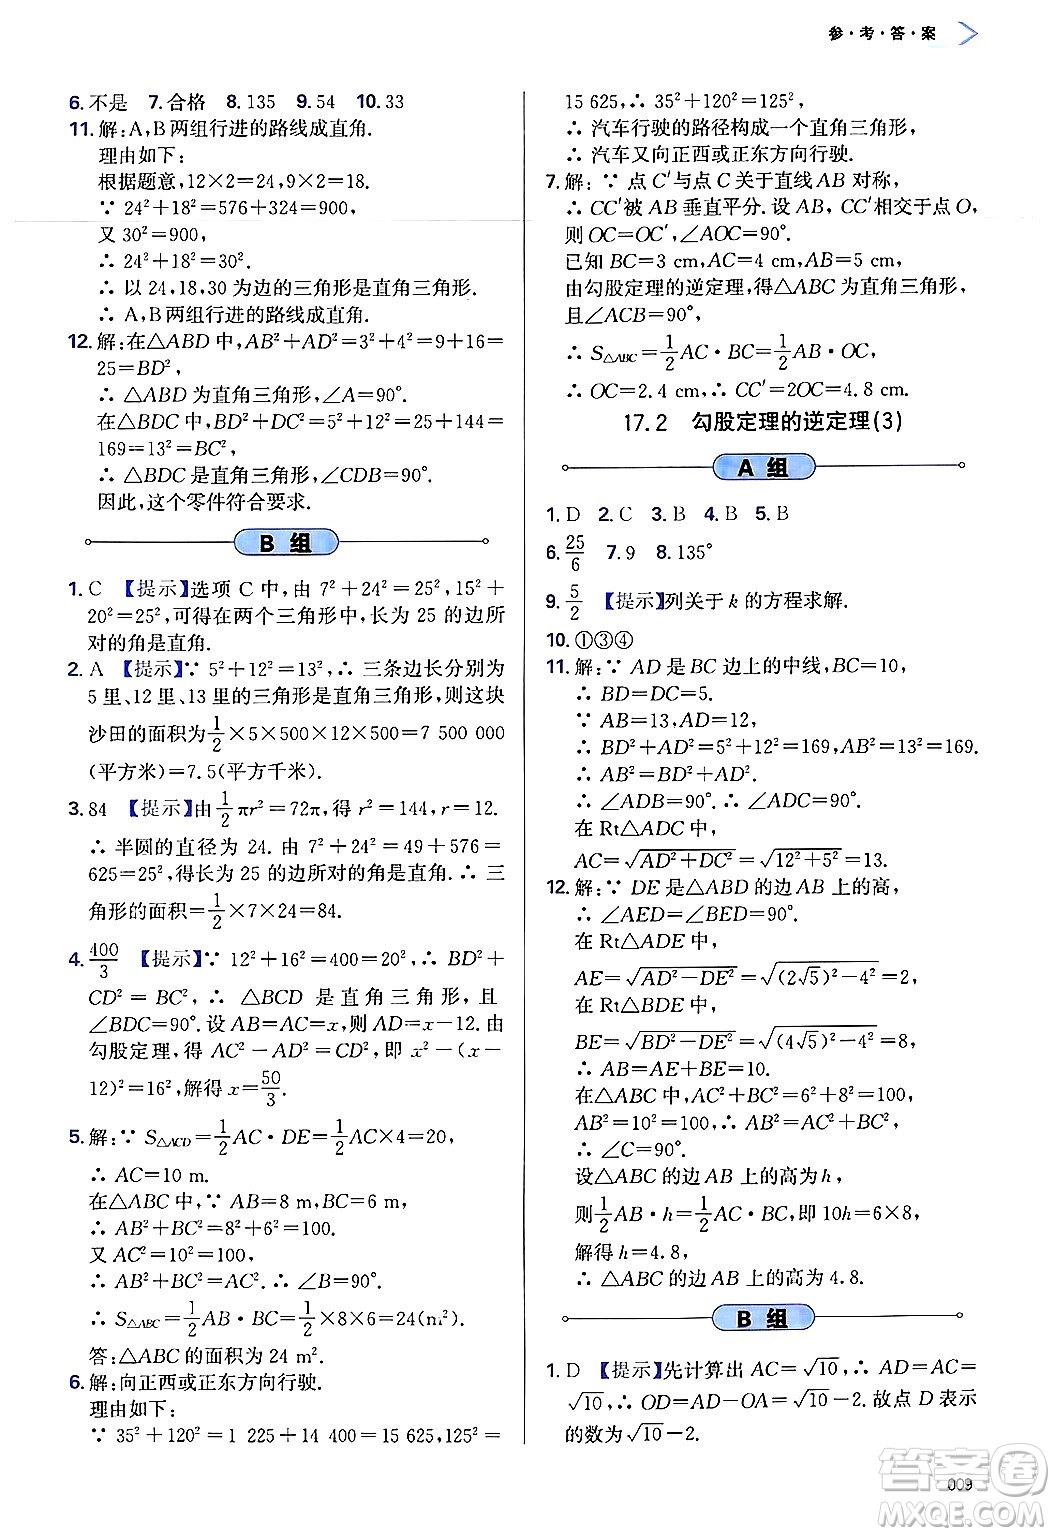 参·考·答·案
6. 不是 7. 合格 8. 135 9. 54 10. 33
11. 解:A,B两组行进的路线成直角.
理由如下:
根据题意,12×2=24,9×2=18.
∵ 24²+18²=576+324=900,
又 30²=900,
∴ 24²+18²=30².
∴ 以 24,18,30 为边的三角形是直角三角形.
∴ A,B两组行进的路线成直角.
12. 解:在△ABD 中,AB²+AD²=3²+4²=9+16=
25=BD²,
∴ △ABD 为直角三角形,∠A=90°.
在△BDC 中,BD²+DC²=5²+12²=25+144=
169=13²=BC²,
∴ △BDC 是直角三角形,∠CDB=90°.
因此,这个零件符合要求.
B 组
1. C 【提示】选项 C 中,由 7²+24²=25²,15²+
20²=25²,可得在两个三角形中,长为 25 的边所
对的角是直角.
2. A 【提示】∵ 5²+12²=13²,∴ 三条边长分别为
5 里、12 里、13 里的三角形是直角三角形,则这块
沙田的面积为1/2×5×500×12×500=7 500 000
(平方米)=7.5(平方千米).
3. 84 【提示】由1/2πr²=72π,得 r²=144,r=12.
∴ 半圆的直径为 24. 由 7²+24²=49+576=
625=25²,得长为 25 的边所对的角是直角.∴ 三
角形的面积=1/2×7×24=84.
4. 400/3 【提示】∵ 12²+16²=400=20²,∴ BD²+
CD²=BC²,∴ △BCD 是直角三角形,且
∠BDC=90°.设 AB=AC=x,则 AD=x-12.由
勾股定理,得 AC²-AD²=CD²,即 x²-(x-
12)²=16²,解得 x=50/3.
5. 解:∵ S△ACD=1/2AC·DE=1/2AC×4=20,
∴ AC=10 m.
在△ABC 中,∵ AB=8 m,BC=6 m,
∴ AB²+BC²=8²+6²=100.
又 AC²=10²=100,
∴ AB²+BC²=AC².∴ ∠B=90°.
∴ S△ABC=1/2AB·BC=1/2×8×6=24(m²).
答:△ABC 的面积为 24 m².
6. 解:向正西或正东方向行驶.
理由如下:
∵ 35²+120²=1 225+14 400=15 625,125²=
15 625,∴ 35²+120²=125².
∴ 汽车行驶的路径构成一个直角三角形,
∴ 汽车又向正西或正东方向行驶.
7. 解:∵ 点 C′与点 C 关于直线 AB 对称,
∴ CC′被 AB 垂直平分.设 AB,CC′相交于点 O,
则 OC=OC′,∠AOC=90°.
已知 BC=3 cm,AC=4 cm,AB=5 cm,
由勾股定理的逆定理,得△ABC 为直角三角形,
且∠ACB=90°,
∴ S△ABC=1/2AC·BC=1/2AB·OC,
∴ OC=2.4 cm,∴ CC′=2OC=4.8 cm.
17.2 勾股定理的逆定理(3)
A 组
1. D 2. C 3. B 4. B 5. B
6. 25/6 7. 9 8. 135°
9. 5/2 【提示】列关于 k 的方程求解.
10. ①③④
11. 解:∵ AD 是 BC 边上的中线,BC=10,
∴ BD=DC=5.
∵ AB=13,AD=12,
∴ BD²+AD²=5²+12²=169,AB²=13²=169.
∴ AB²=BD²+AD².
∴ ∠ADB=90°.∴ ∠ADC=90°.
在 Rt△ADC 中,
AC=√(AD²+DC²)=√(12²+5²)=13.
12. 解:∵ DE 是△ABD 的边 AB 上的高,
∴ ∠AED=∠BED=90°.
在 Rt△ADE 中,
AE=√(AD²-DE²)=√((2√5)²-4²)=2,
在 Rt△BDE 中,
BE=√(BD²-DE²)=√((4√5)²-4²)=8,
∴ AB=AE+BE=10.
在△ABC 中,AC²+BC²=6²+8²=100,
AB²=10²=100,∴ AC²+BC²=AB².
∴ ∠C=90°.
设△ABC 的边 AB 上的高为 h,
则1/2AB·h=1/2AC·BC,即 10h=6×8,
解得 h=4.8,
∴ △ABC 的边 AB 上的高为 4.8.
B 组
1. D 【提示】先计算出 AC=√10,∴ AD=AC=
√10,∴ OD=AD-OA=√10-2.故点 D 表示
的数为√10-2.
答案圈
MXQE.COM
009